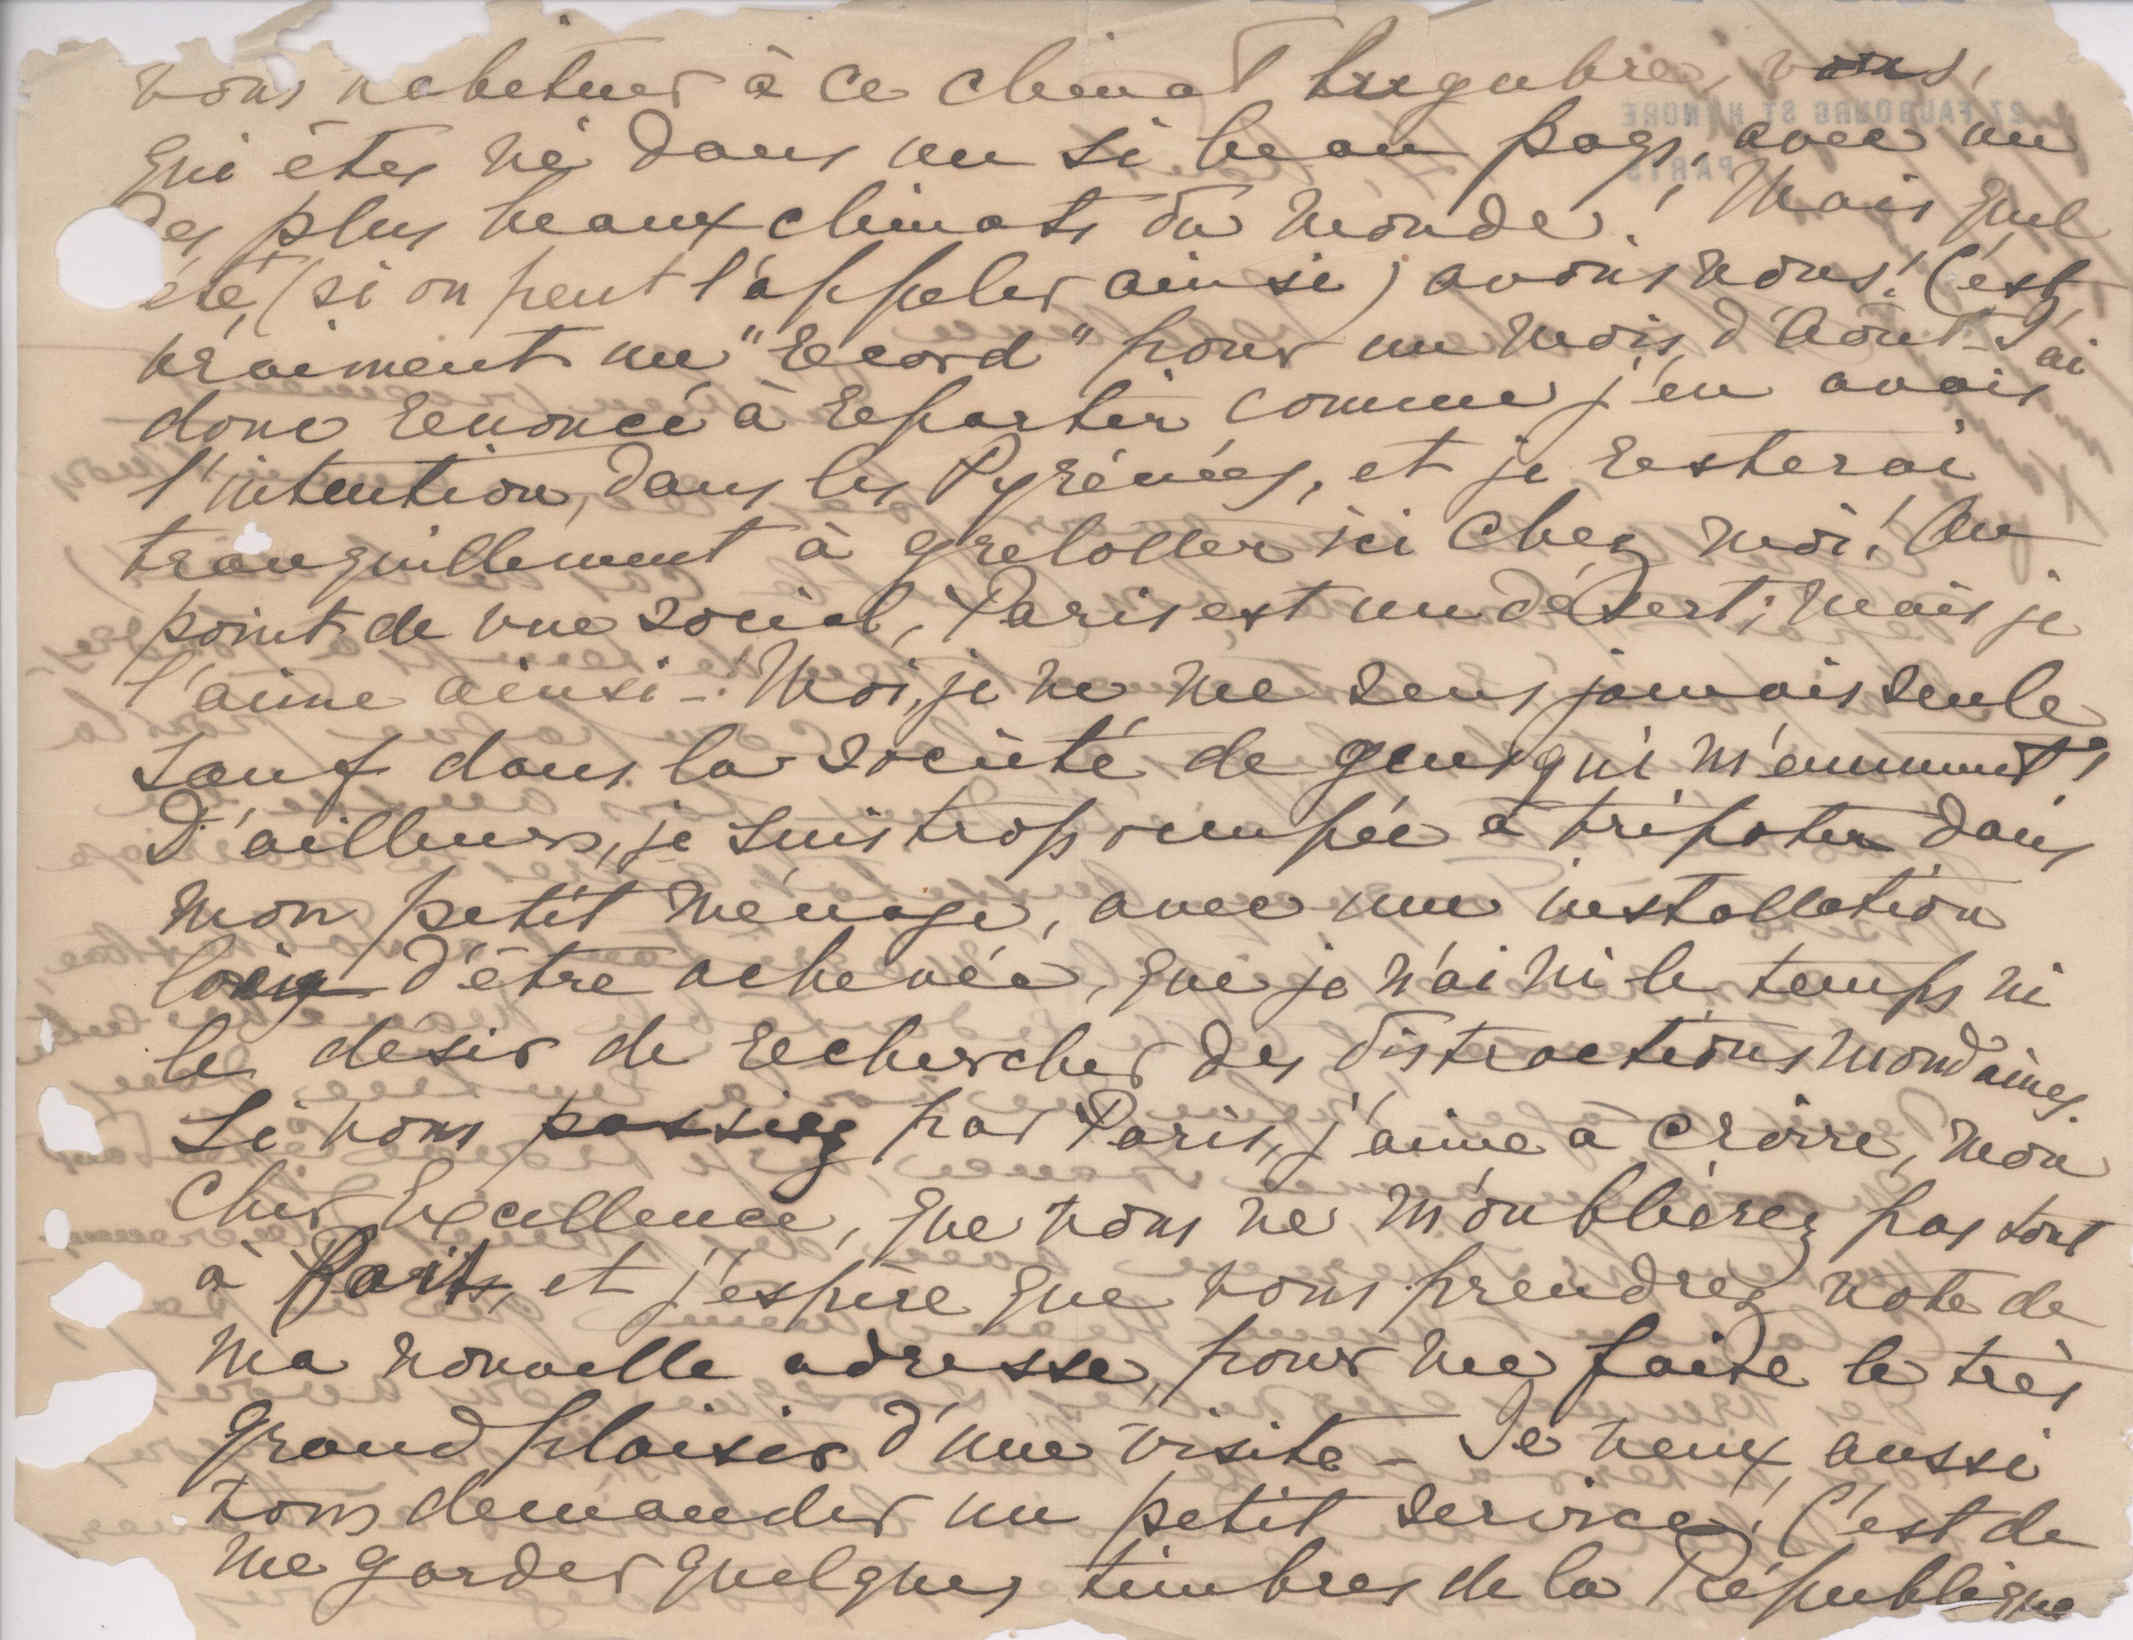 vous habituer à ce climat lugubre, vous,
qui êtes né dans un si beau pays, avec un
des plus beaux climats du monde! Mais quel
été, (si on peut l'appeler ainsi) avons nous! C'est
vraiment un "record" pour un mois d'Août - J'ai
donc renoncé à repartir comme j'en avais
l'intention, dans les Pyrénées, et je resterai
tranquillement à grelotter ici chez moi! Au
point de vue social, Paris est un désert; mais je
l'aime ainsi -! Moi, je ne me sens jamais seule
sauf dans la société de gens qui m'ennuient!
D'ailleurs, je suis trop occupée à tripoter dans
mon petit ménage, avec une installation
loin d'être achevée, que je n'ai ni le temps ni
le désir de rechercher des distractions mondaines.
Si vous passiez par Paris, j'aime à croire, mon
cher Excellence, que vous ne m'oublierez pas tout
à fait, et j'espère que vous prendrez note de
ma nouvelle adresse, pour me faire le très
grand plaisir d'une visite - Je veux aussi
vous demander un petit service! C'est de
me garder quelques timbres de la République
27 FAUBOURG ST HONORÉ
PARIS